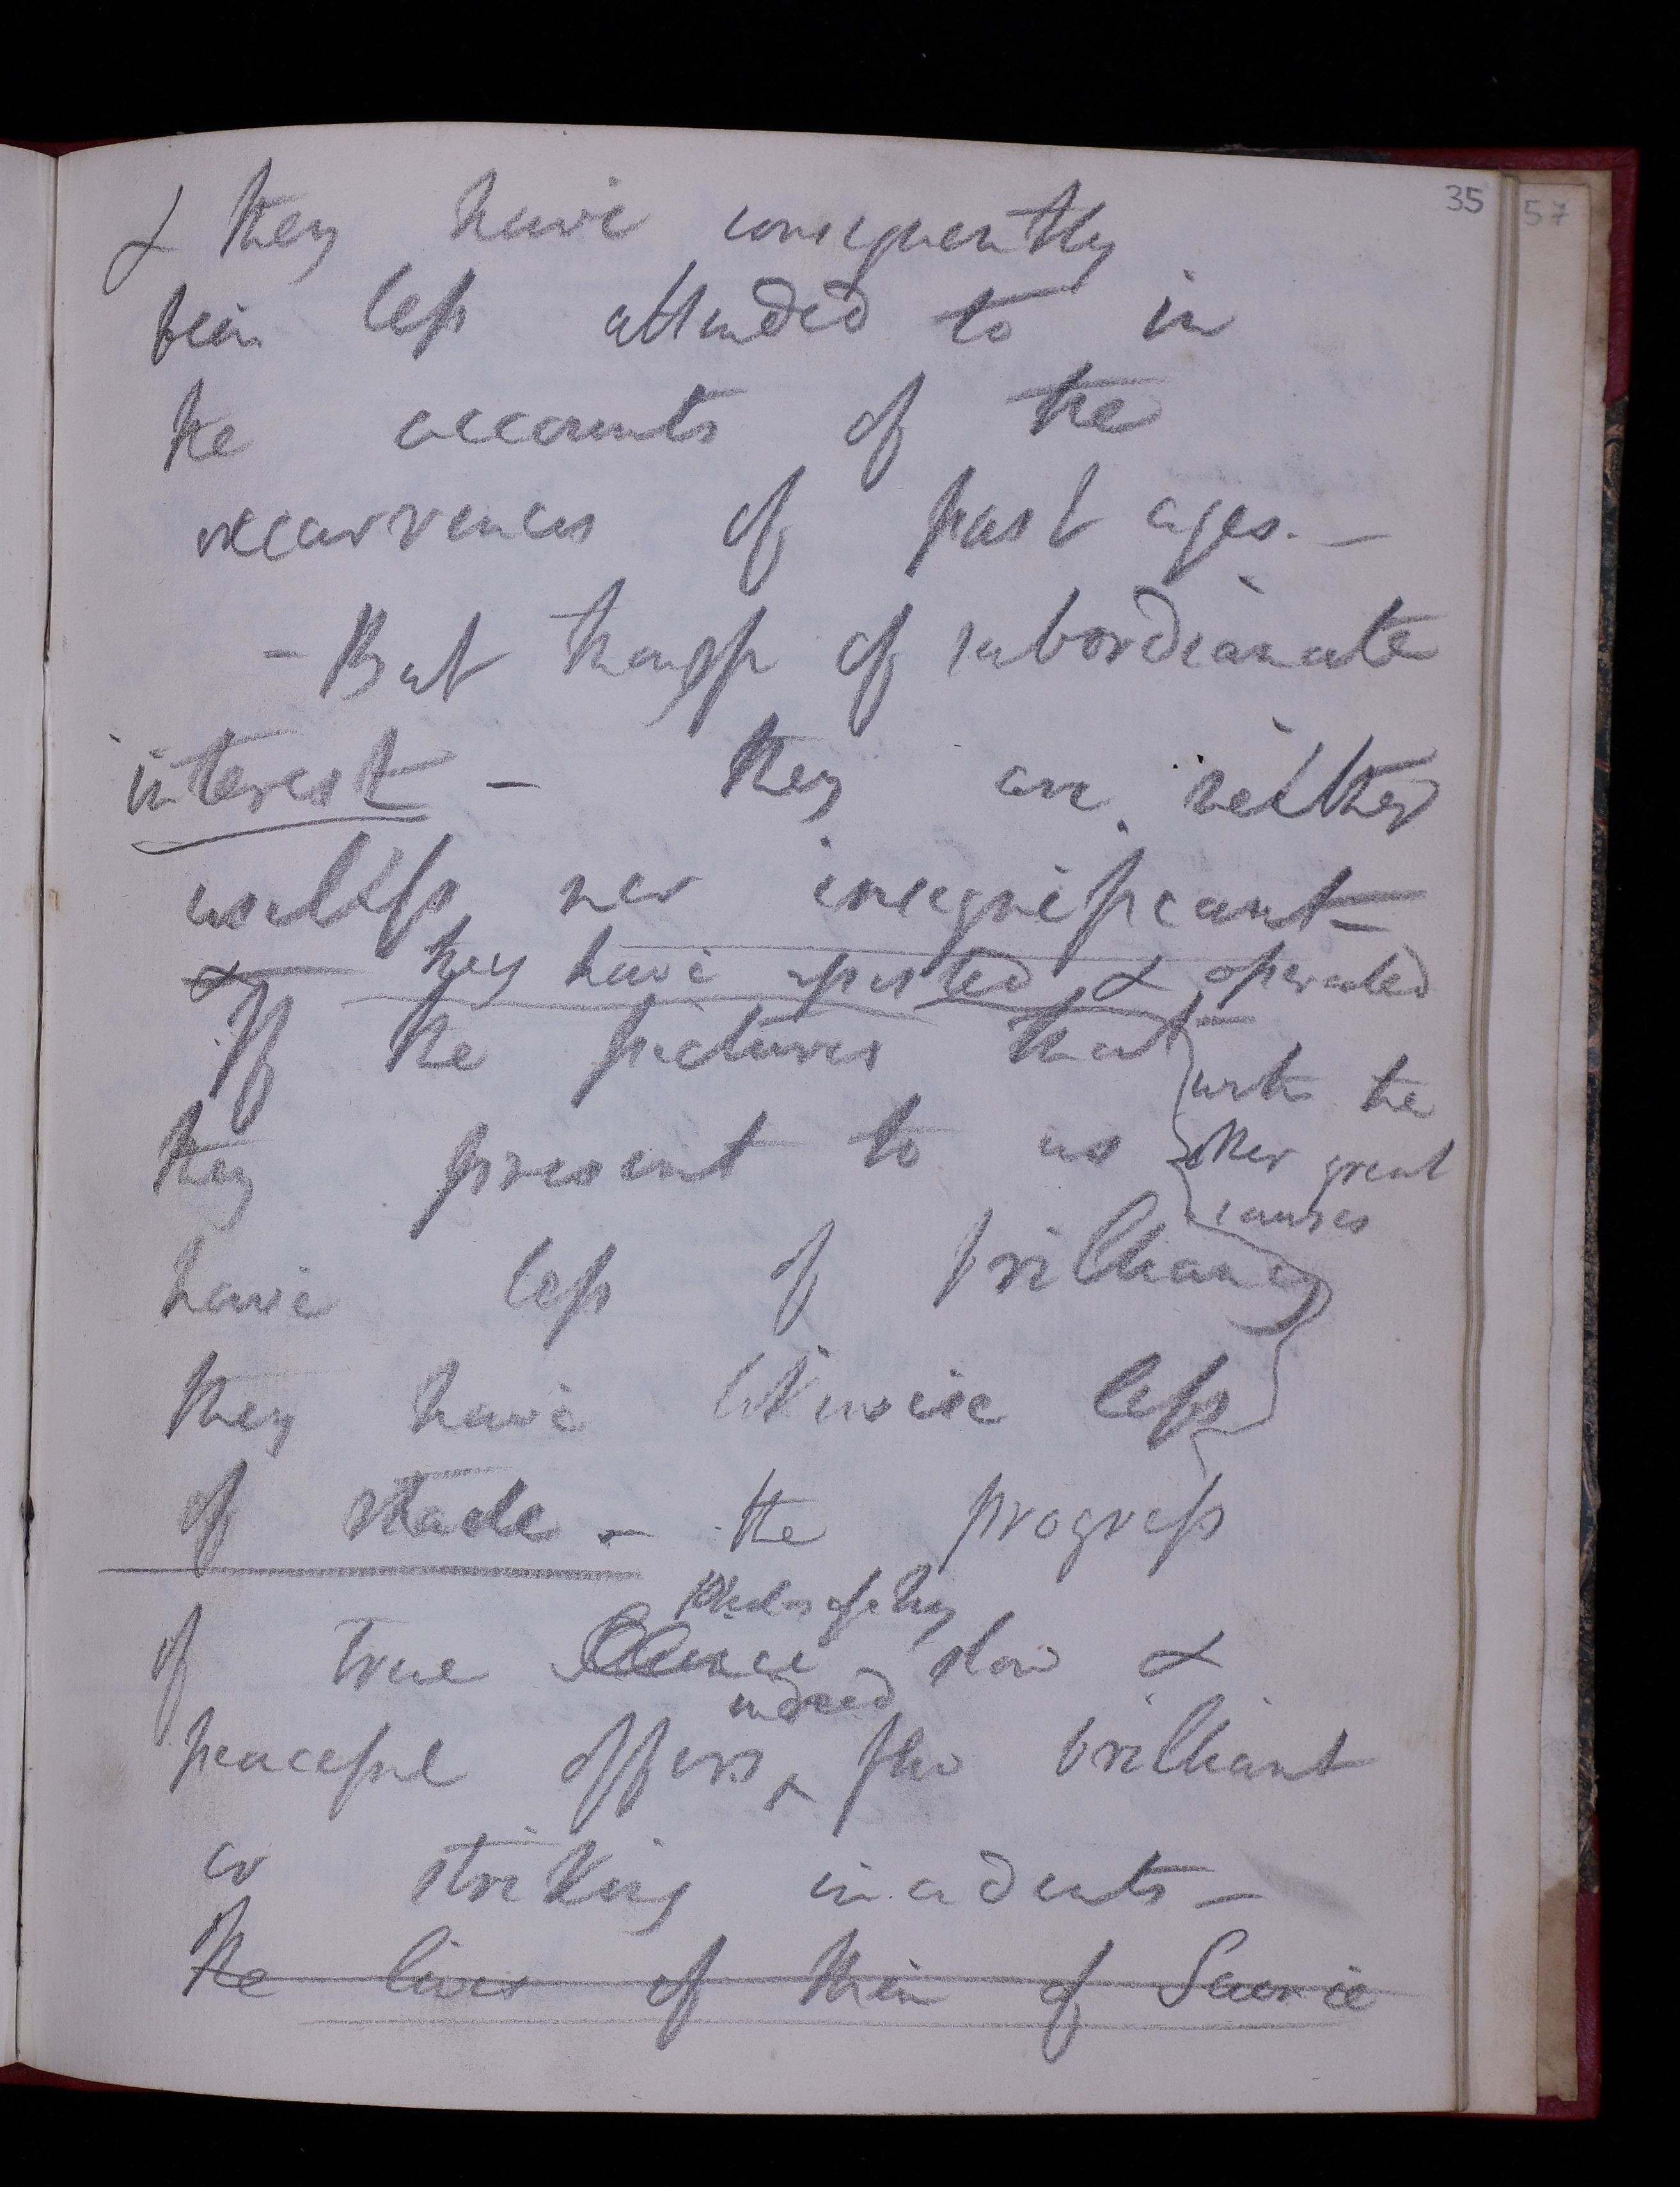 35
57
& they have consequently
been less attended to in
the accounts of the
occurrences of past ages. —
— But though of subordinate
interest — they are neither
useless nor insignificant —
& they have assisted & operated
with the
other great
causes
If the pictures that
they present to us
have less of brilliancy
they have likewise less
of shade. — the progress
Philosophy
of true Science slow &
indeed
peaceful offers ^ few brilliant
or striking incidents —
The lives of Men of Science